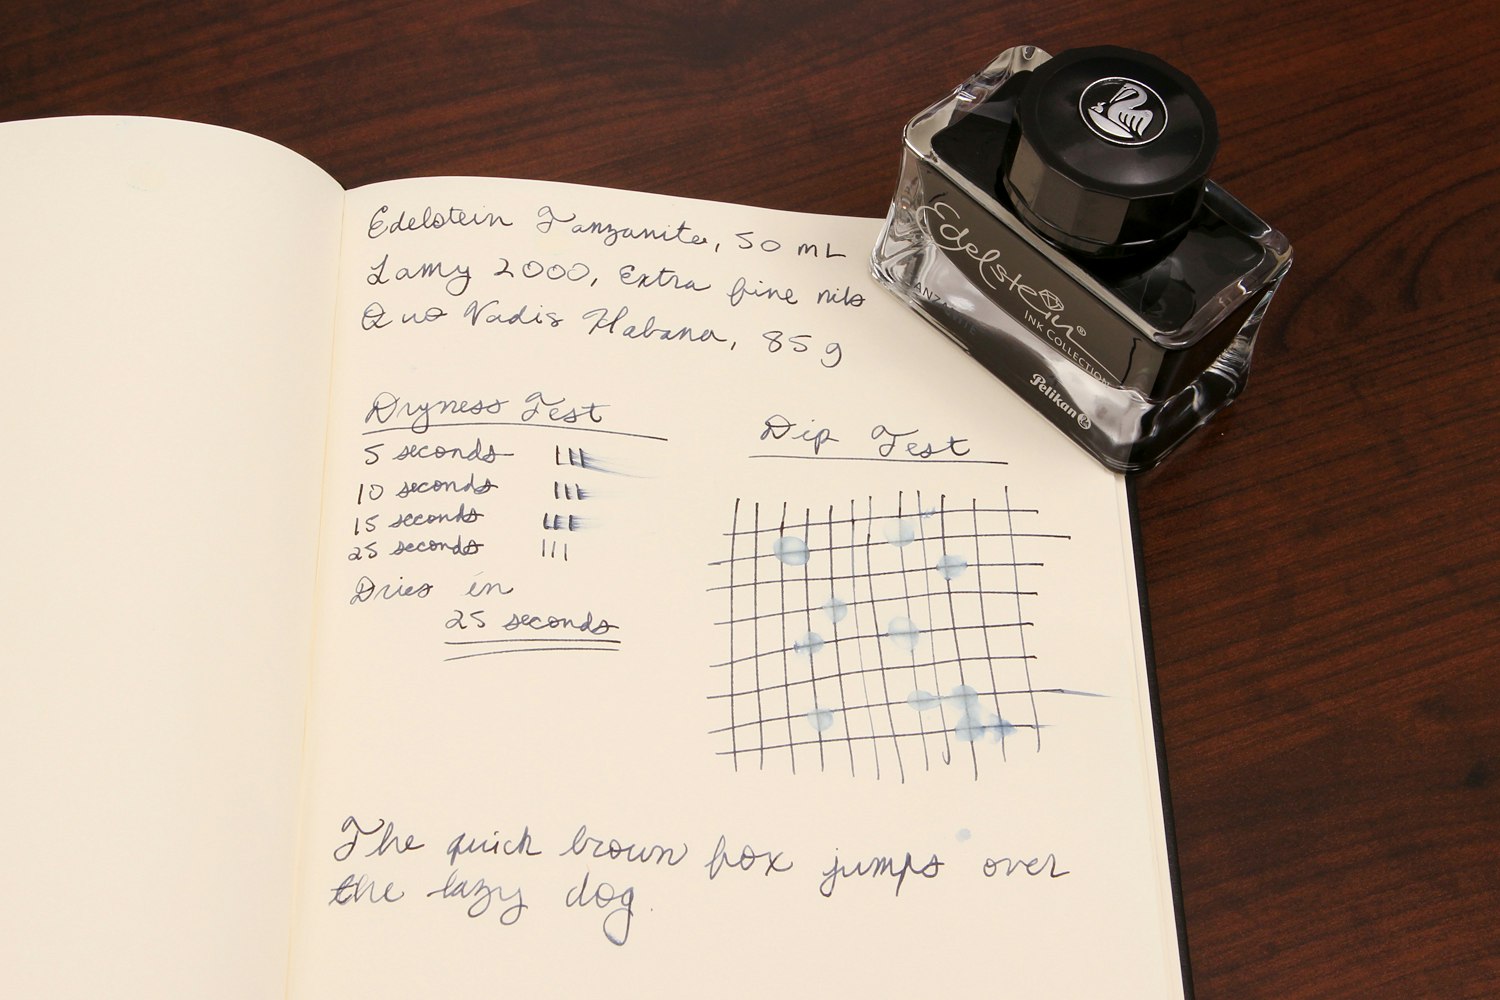 Edelstein Tanzanite, 50 mL
Lamy 2000, Extra fine nib
Quo Vadis Habana, 85 g
Dryness Test
5 seconds
10 seconds
15 seconds
25 seconds
Dries in
25 seconds
Dip Test
The quick brown fox jumps over
the lazy dog.
Edelstein®
INK COLLECTION
TANZANITE
Pelikan